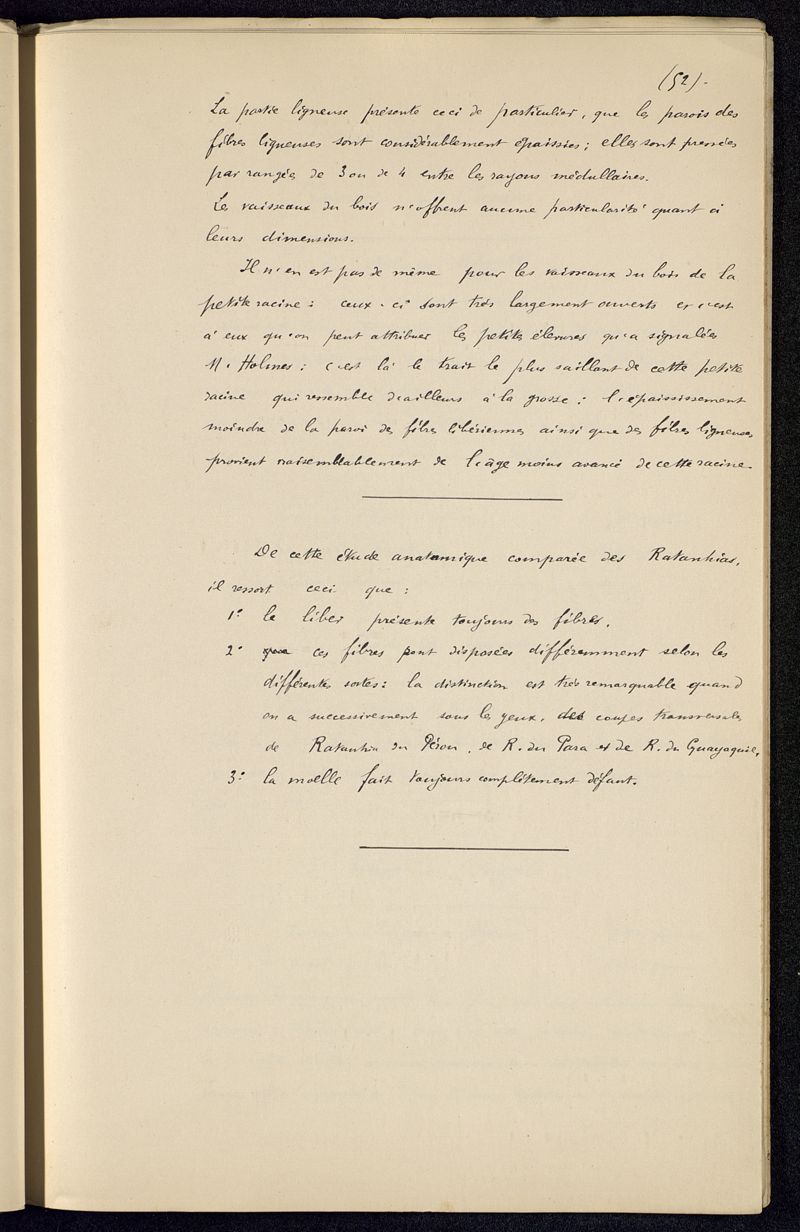 (52).
La partie ligneuse présente ceci de particulier, que les parois des
fibres ligneuses sont considérablement épaissies ; elles sont pressées
par rangées de 3 ou de 4 entre les rayons médullaires.
Les vaisseaux du bois n'offrent aucune particularité quant à
leurs dimensions.
Il n'en est pas de même pour les vaisseaux du bois de la
petite racine : ceux-ci sont très largement ouverts et c'est
à eux qu'on peut attribuer les petites élevures qu'a signalées
M. Holmes : c'est là le trait le plus saillant de cette petite
racine qui ressemble d'ailleurs à la grosse : l'épaississement
moindre de la paroi des fibres libériennes ainsi que des fibres ligneuses
provient vraisemblablement de l'âge moins avancé de cette racine.
De cette étude anatomique comparée des Ratanhias,
il ressort ceci que :
1° le liber présente toujours des fibres.
2° ces fibres sont disposées différemment selon les
différentes sortes : la distinction est très remarquable quand
on a successivement sous les yeux, des coupes transversales
de Ratanhia du Pérou, de R. du Para et de R. du Guayaquil.
3° la moelle fait toujours complètement défaut.